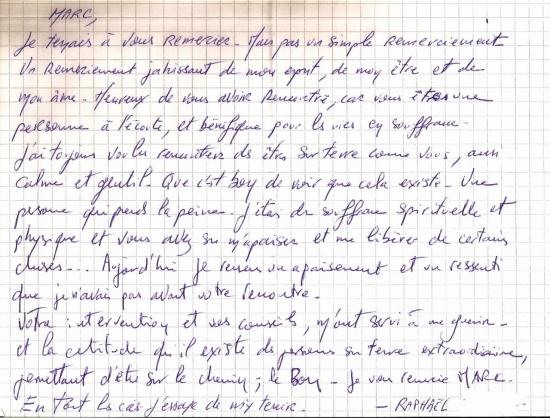 MARC,
Je tenais à vous remercier. Mais pas un simple remerciement
Un remerciement jaillissant de mon esprit, de mon être et de
mon âme. Heureux de vous avoir rencontré, car vous êtes une
personne à l'écoute, et bénéfique pour les vies en souffrance.
J'ai toujours voulu rencontrer des êtres sur terre comme vous, aussi
calme et gentil. Que c'est bon de voir que cela existe. Une
personne qui prend la peine. J'étais en souffrance spirituelle et
physique et vous avez su m'apaiser et me libérer de certains
choses... Aujourd'hui je ressens un apaisement et un ressenti
que je n'avais pas avant votre rencontre.
Votre intervention et vos conseils, m'ont servi à me guérir.
et la certitude qu'il existe des personnes sur terre extraordinaire,
permettant d'être sur le chemin; le Bon. Je vous remercie MARC.
En tout les cas j'essaye de m'y tenir. - RAPHAËL